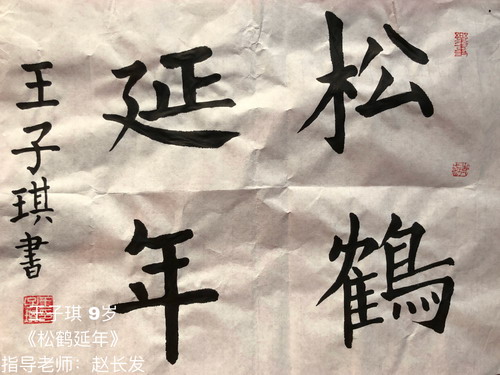 松鹤
延年
王子琪書
王子琪 9岁
《松鹤延年》
指导老师：赵长发